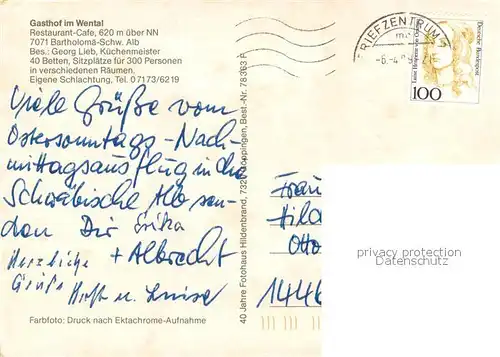 Gasthof im Wental
Restaurant-Cafe, 620 m über NN
7071 Bartholomä-Schw. Alb
Bes.: Georg Lieb, Küchenmeister
40 Betten, Sitzplätze für 300 Personen
in verschiedenen Räumen.
Eigene Schlachtung, Tel. 07173/6219
Viele Grüße vom
Ostersonntags-Nach-
mittagsausflug in die
Schwäbische Alb sen-
den Dir Erika
+ Albrecht
Herzliche
Grüße u. Luise
Farbfoto: Druck nach Ektachrome-Aufnahme
40 Jahre Fotohaus Hildenbrand, 7320 Göppingen, Best.-Nr. 78 363 F
BRIEFZENTRUM
Deutsche Bundespost
100
Frau
Hila
Otto
1446
privacy protection
Datenschutz